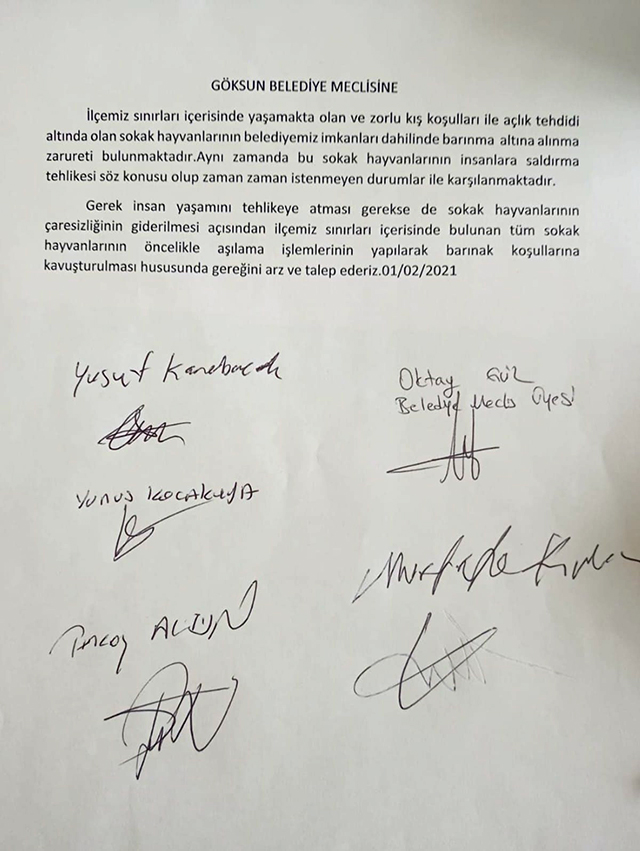 GÖKSUN BELEDİYE MECLİSİNE
İlçemiz sınırları içerisinde yaşamakta olan ve zorlu kış koşulları ile açlık tehdidi
altında olan sokak hayvanlarının belediyemiz imkanları dahilinde barınma altına alınma
zarureti bulunmaktadır.Aynı zamanda bu sokak hayvanlarının insanlara saldırma
tehlikesi söz konusu olup zaman zaman istenmeyen durumlar ile karşılanmaktadır.
Gerek insan yaşamını tehlikeye atması gerekse de sokak hayvanlarının
çaresizliğinin giderilmesi açısından ilçemiz sınırları içerisinde bulunan tüm sokak
hayvanlarının öncelikle aşılama işlemlerinin yapılarak barınak koşullarına
kavuşturulması hususunda gereğini arz ve talep ederiz.01/02/2021
Yusuf
Oktay GÜL
Belediye Meclis Üyesi
Yunus KOCAKAYA